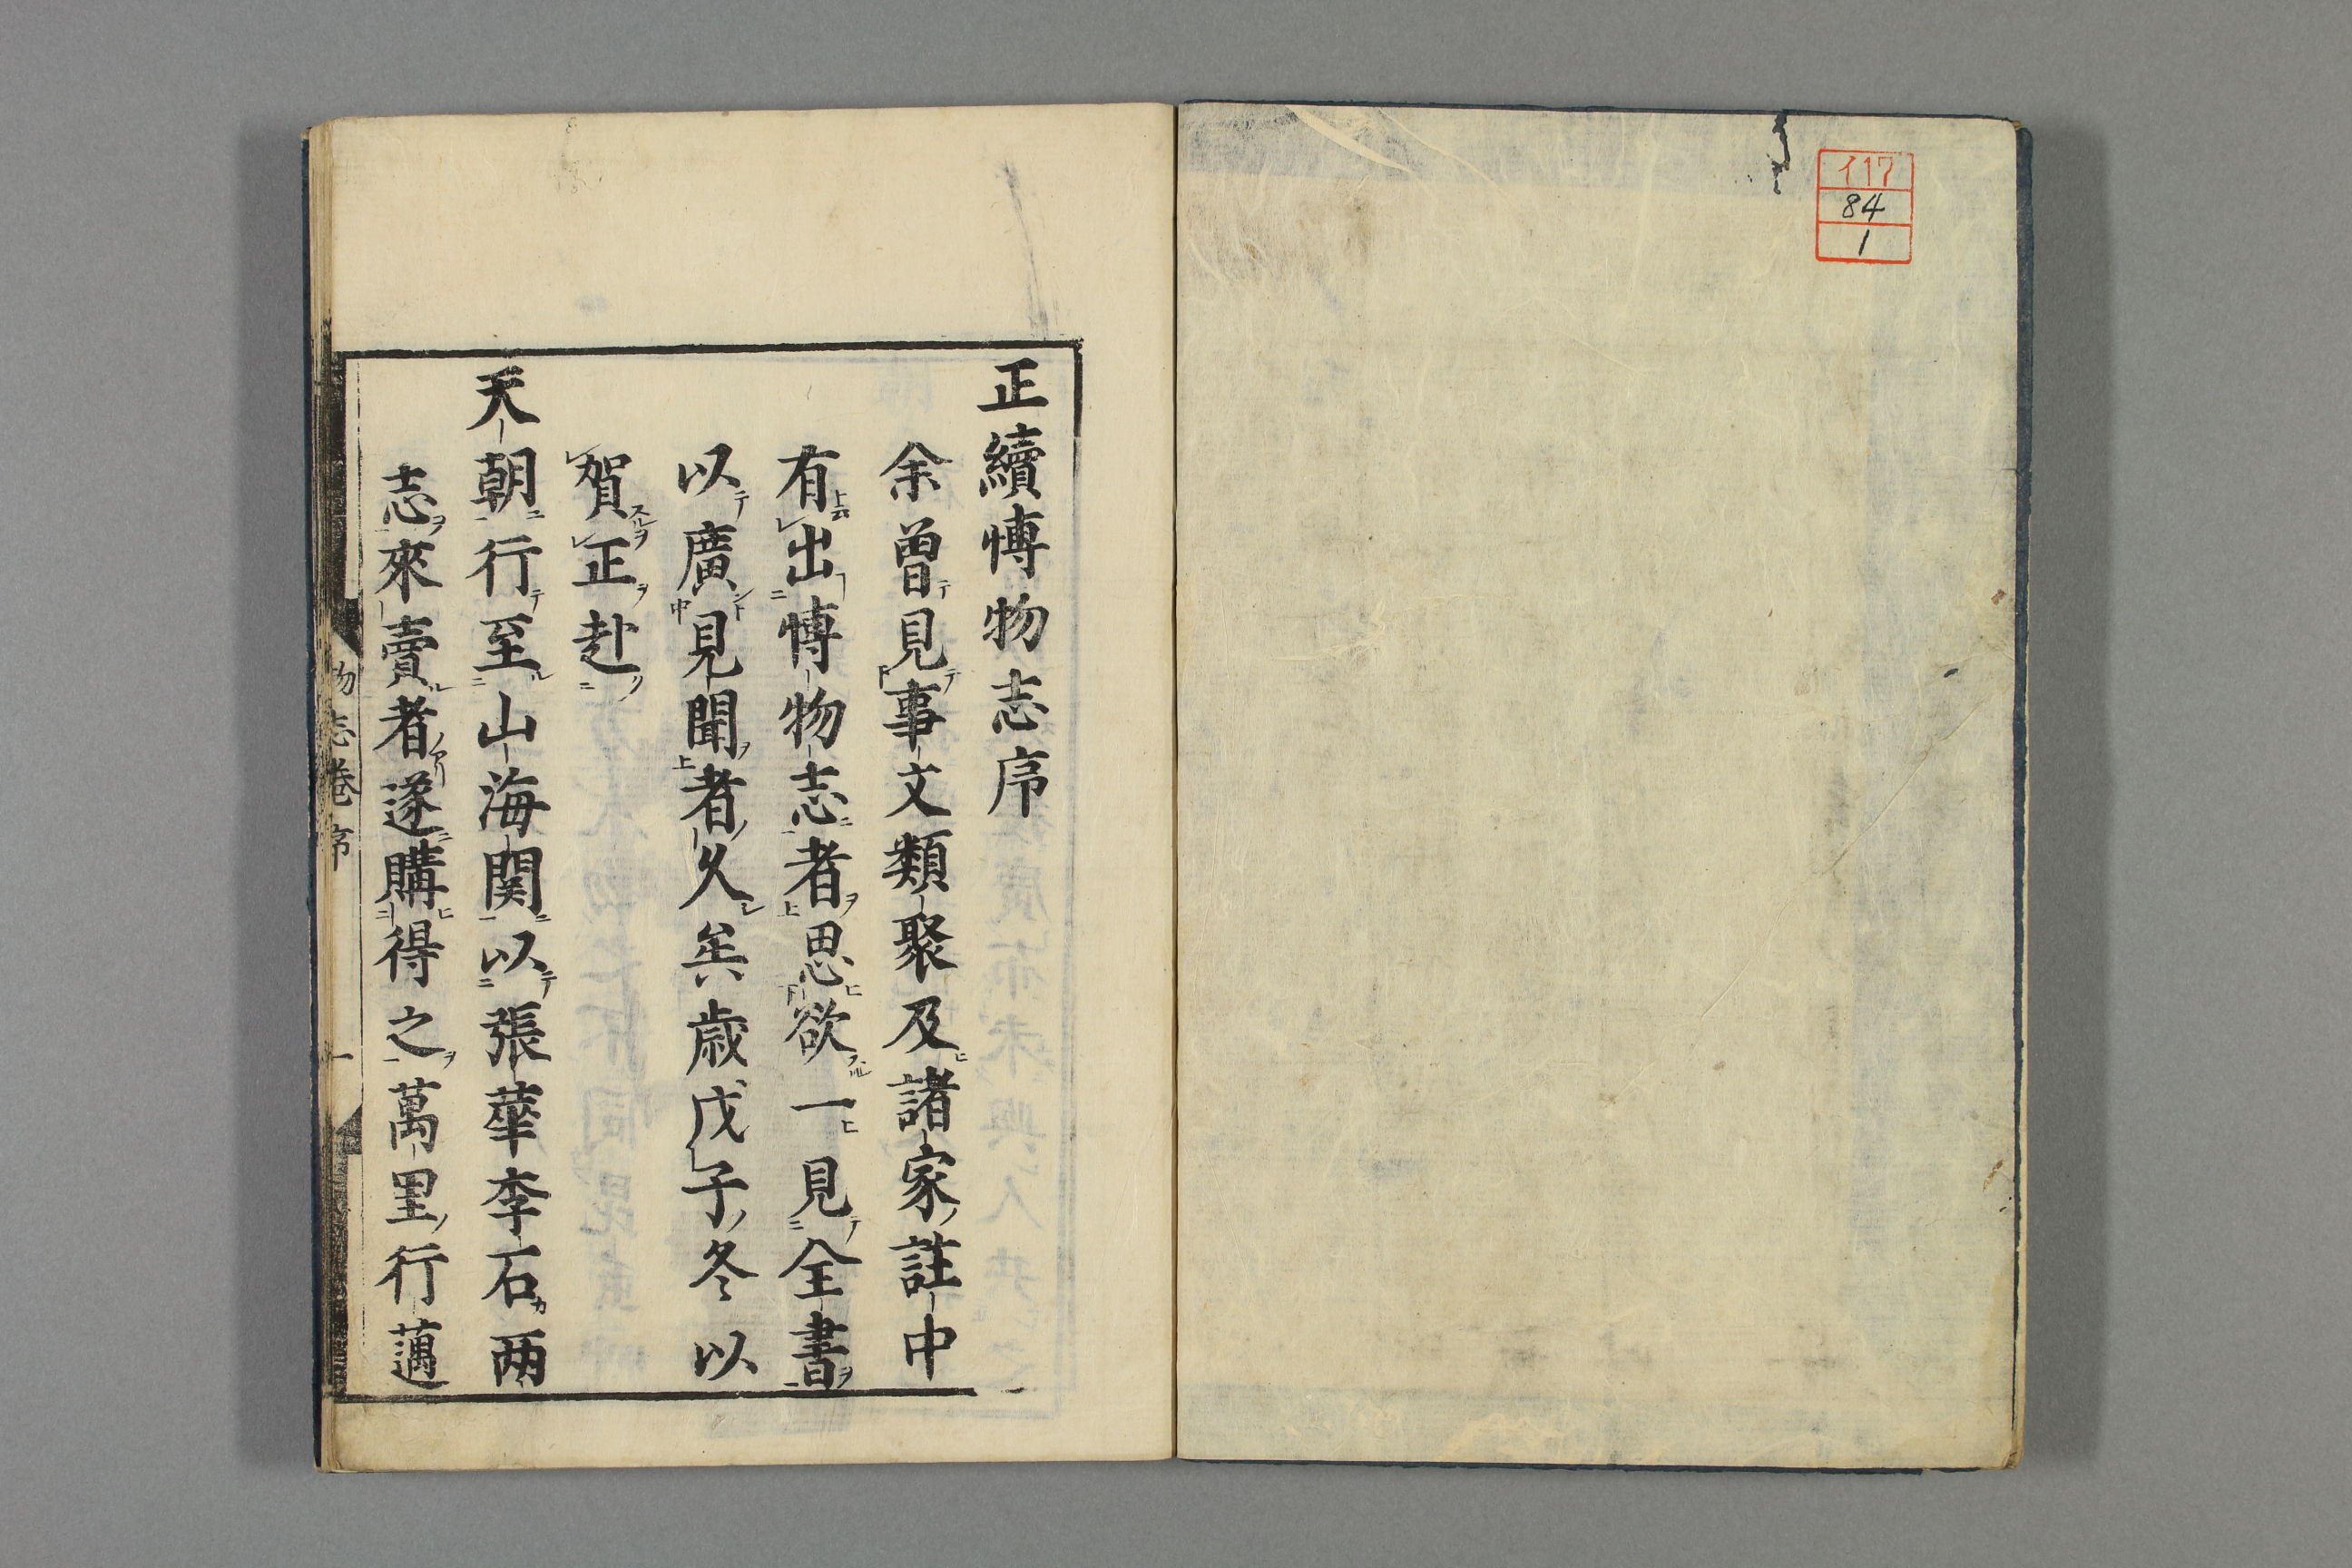 イ17
84
1
正續博物志序
余曾見事文類聚及諸家註中
有出博物志者思欲一見全書
以廣見聞者久矣歳戊子冬以
賀正赴
天朝行至山海関以張華李石两
志來賣者遂購得之萬里行邁
物志卷序 一